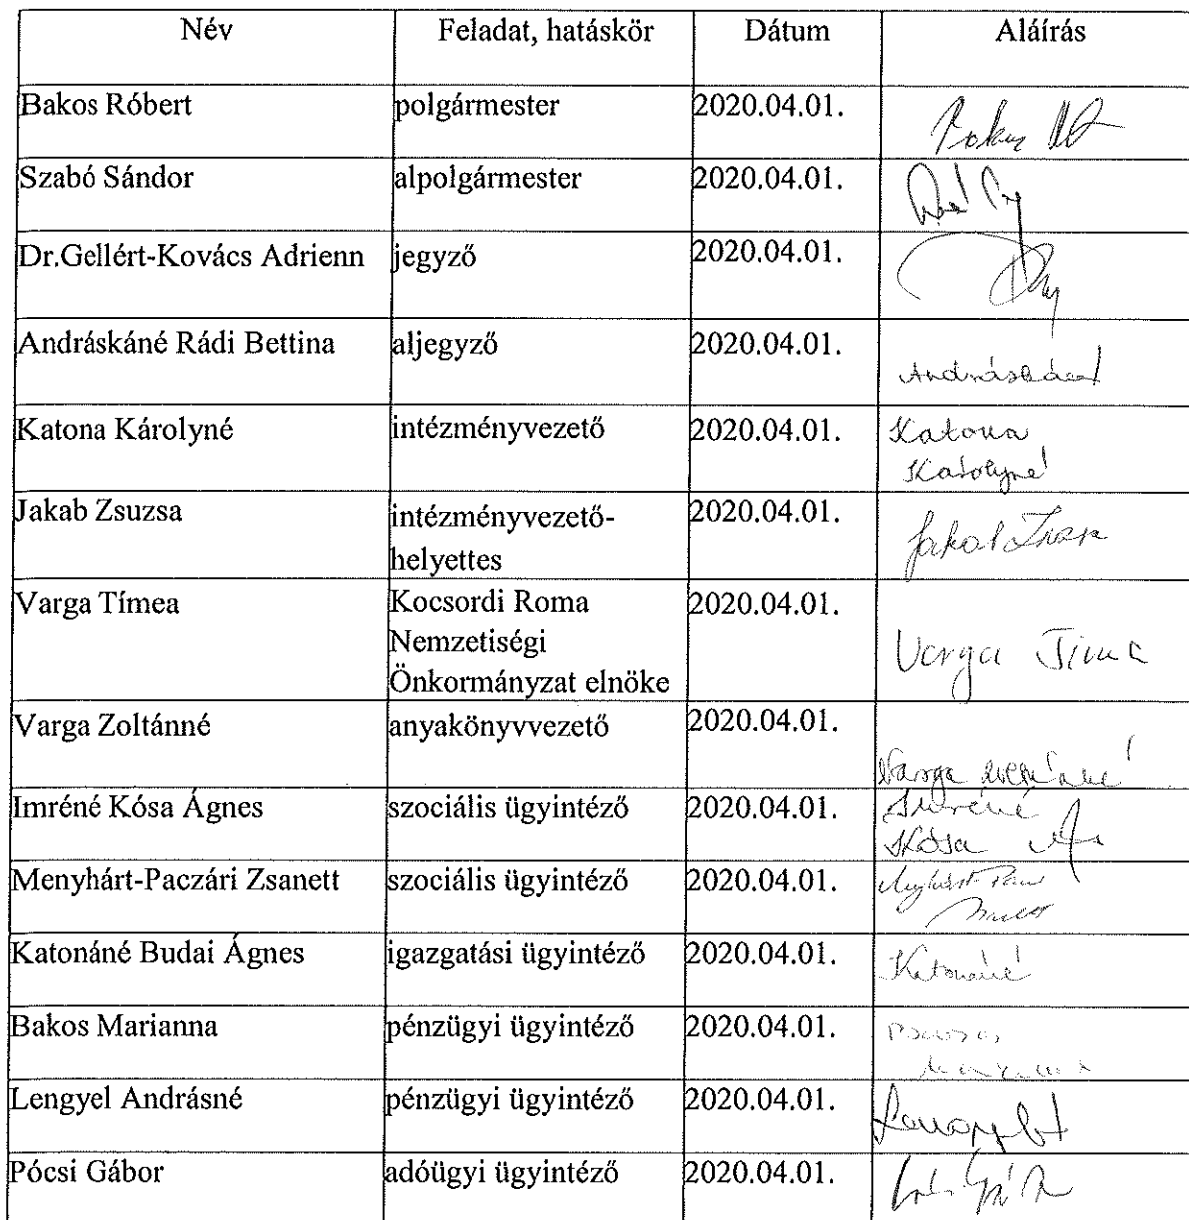 Név Feladat, hatáskör Dátum Aláírás
Bakos Róbert polgármester 2020.04.01.
Szabó Sándor alpolgármester 2020.04.01.
Dr.Gellért-Kovács Adrienn jegyző 2020.04.01.
Andráskáné Rádi Bettina aljegyző 2020.04.01.
Katona Károlyné intézményvezető 2020.04.01. Katona
Károlyné
Jakab Zsuzsa intézményvezető- 2020.04.01.
helyettes
Varga Tímea Kocsordi Roma 2020.04.01.
Nemzetiségi
Varga Tímea
Önkormányzat elnöke
Varga Zoltánné anyakönyvvezető 2020.04.01.
Varga
Imréné Kósa Ágnes szociális ügyintéző 2020.04.01. Imréné
Kósa
Menyhárt-Paczári Zsanett szociális ügyintéző 2020.04.01.
Katonáné Budai Ágnes igazgatási ügyintéző 2020.04.01. Katonáné
Bakos Marianna pénzügyi ügyintéző 2020.04.01.
Lengyel Andrásné pénzügyi ügyintéző 2020.04.01.
Pócsi Gábor adóügyi ügyintéző 2020.04.01.